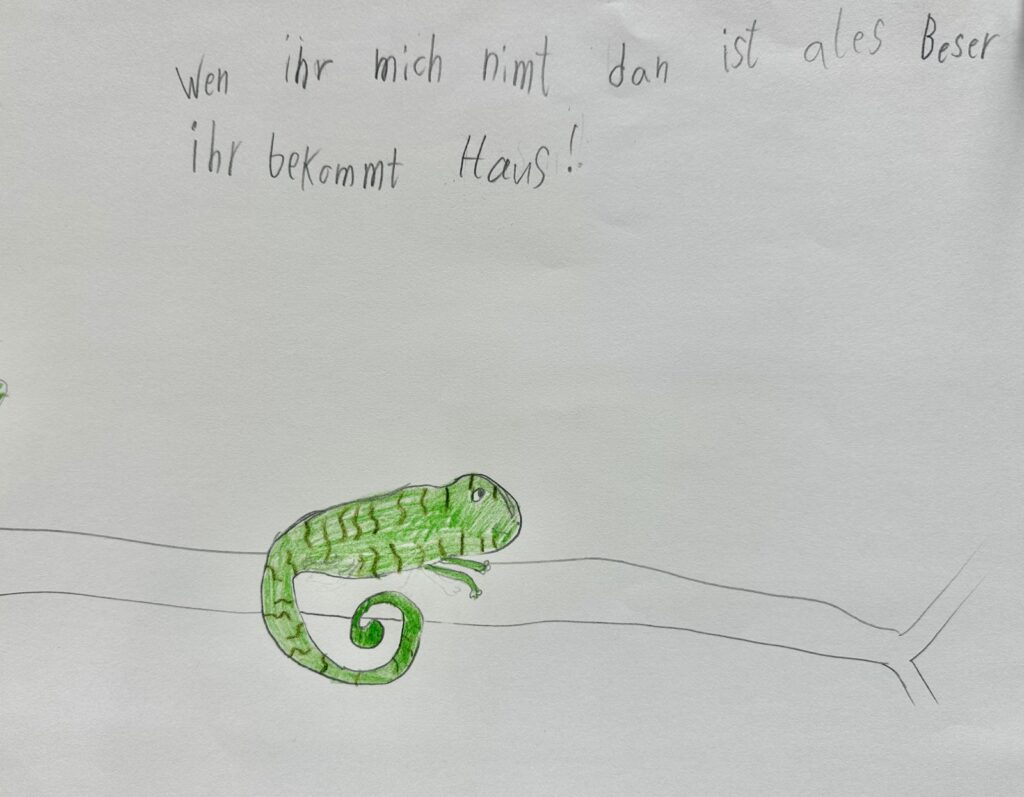 Wen ihr mich nimt dan ist ales Beser
ihr bekommt Haus!